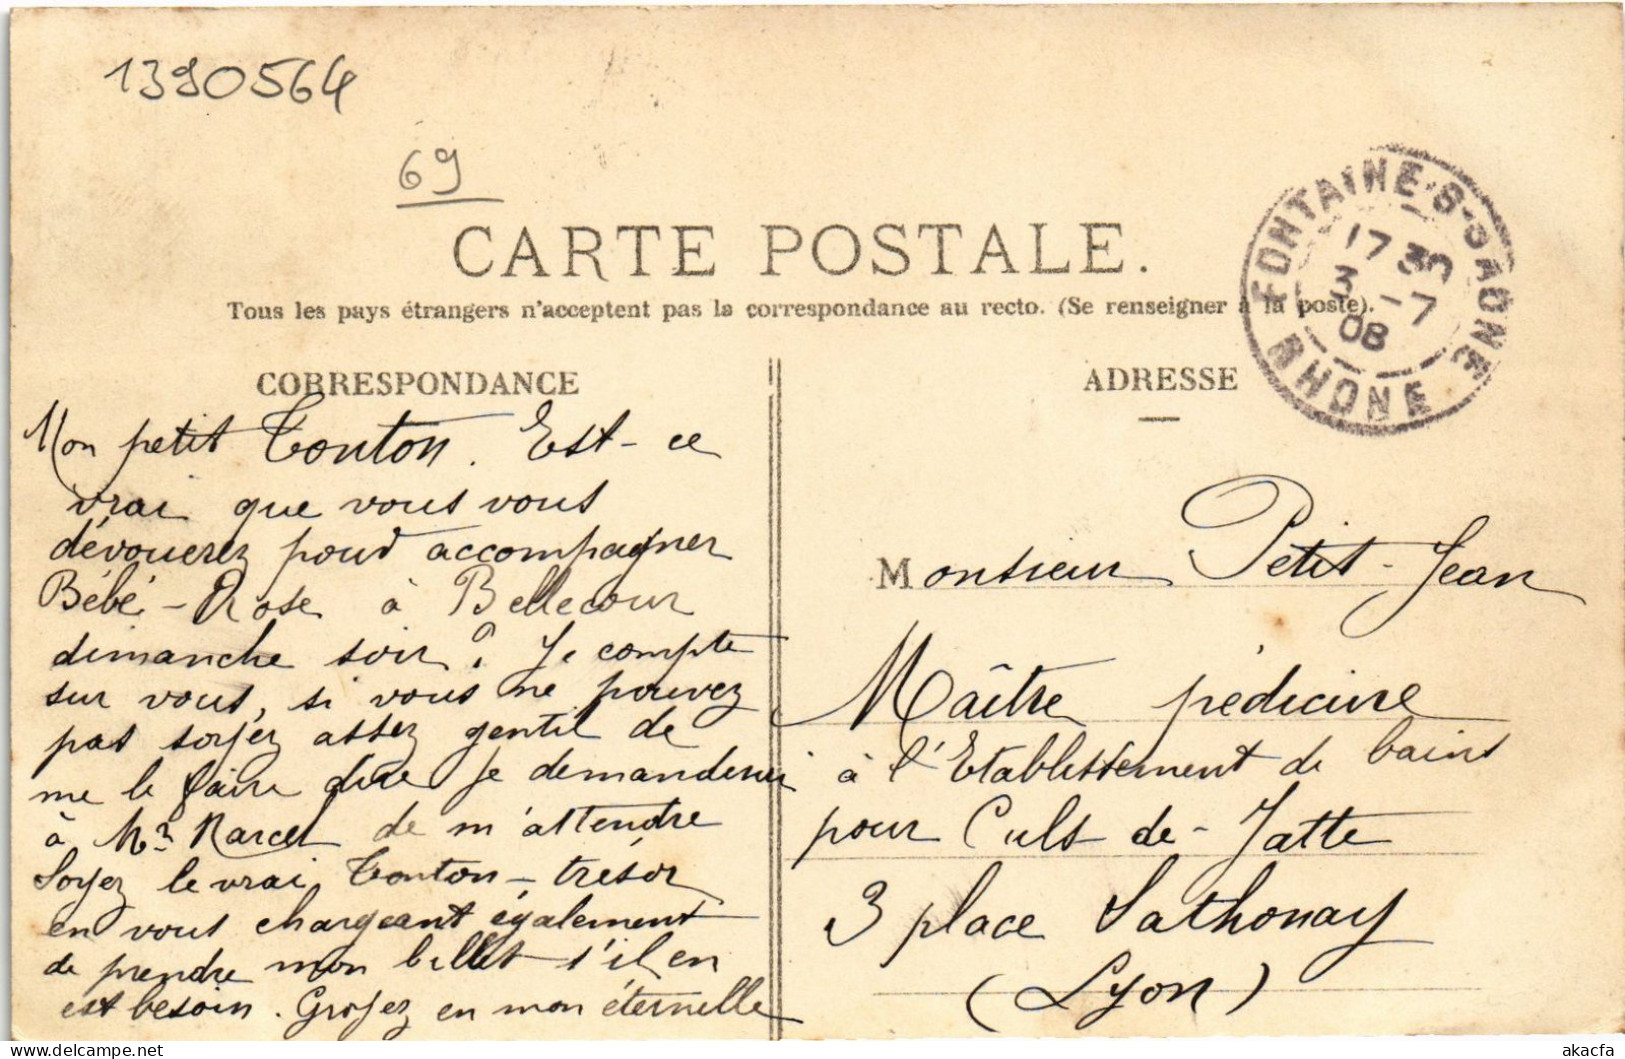 1390564
69
CARTE POSTALE.
Tous les pays étrangers n'acceptent pas la correspondance au recto. (Se renseigner à la poste).
FONTAINE-S-SAONE
17 35
3 -7
08
RHONE
CORRESPONDANCE
Mon petit Tonton. Est-ce
vrai que vous vous
dévouerez pour accompagner
Bébé-Rose à Bellecour
dimanche soir? Je compte
sur vous, si vous ne pouvez
pas soyez assez gentil de
me le faire dire je demanderai
à Mr Marcel de m'attendre
Soyez le vrai Tonton-trésor
en vous chargeant également
de prendre mon billet s'il en
est besoin. Croyez en mon éternelle
ADRESSE
Monsieur Petit-Jean
Maître pédicure
à l'Etablissement de bains
pour Culs-de-Jatte
3 place Sathonay
(Lyon)
akacfa